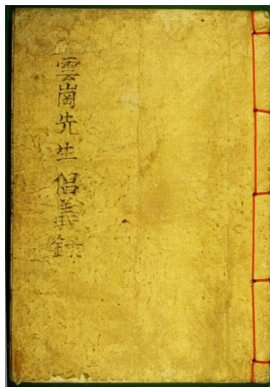 雲崗先生倡義錄